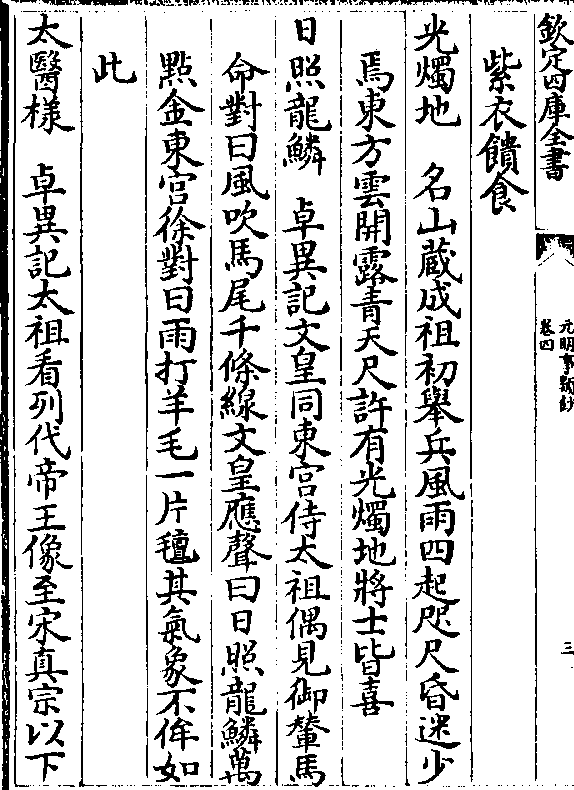 欽定四庫全書
元明事類鈔
卷四
三
紫衣饋食
光燭地　名山蔵成祖初舉兵風雨四起咫尺昏迷少
焉東方雲開露青天尺許有光燭地將士皆喜
日照龍鱗　卓異記文皇同東宮侍太祖偶見御輦馬
命對曰風吹馬尾千條線文皇應聲曰日照龍鱗萬
點金東宮徐對曰雨打羊毛一片氊其氣象不侔如
此
太醫様　卓異記太祖看列代帝王像至宋真宗以下